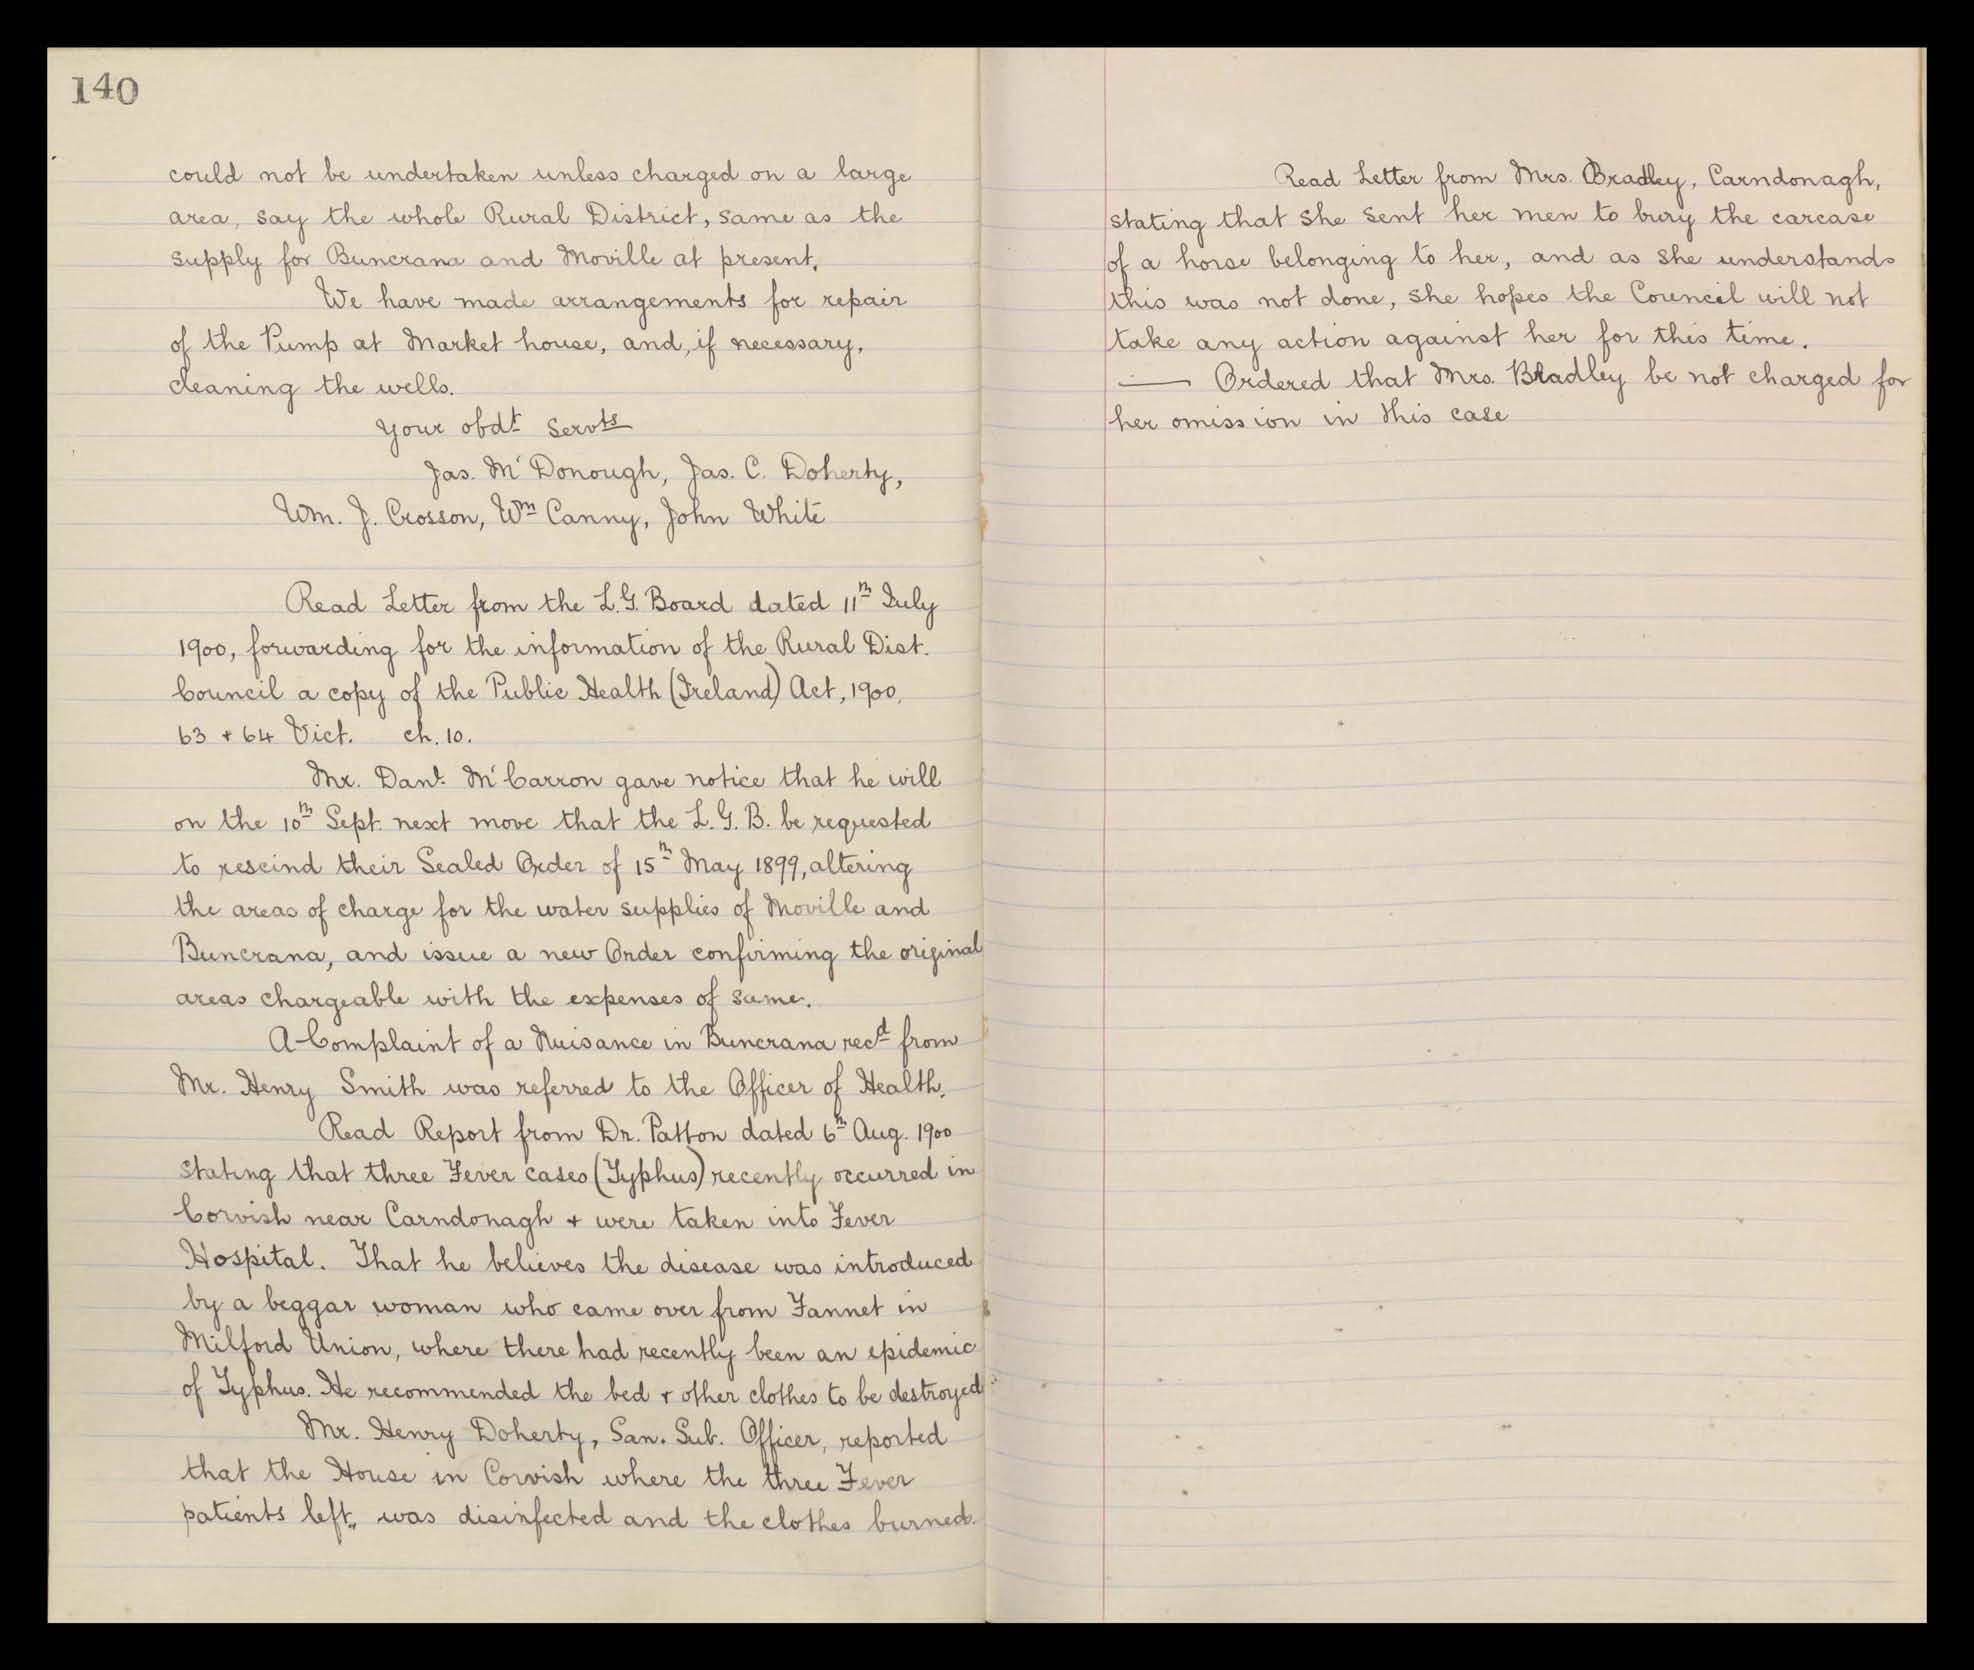 140
could not be undertaken unless charged on a large
area, say the whole Rural District, same as the
supply for Buncrana and Moville at present.
We have made arrangements for repair
of the Pump at Market house, and, if necessary,
cleaning the wells.
Your obdt Servts
Jas. Mc Donough, Jas. C. Doherty,
Wm. J. Crosson, Wm Canny, John White
Read Letter from the L.G. Board dated 11th July
1900, forwarding for the information of the Rural Dist.
Council a copy of the Public Health (Ireland) Act, 1900,
63 + 64 Vict. ch. 10.
Mr. Danl. McCarron gave notice that he will
on the 10th Sept. next move that the L.G.B. be requested
to rescind their Sealed Order of 15th May 1899, altering
the areas of charge for the water supplies of Moville and
Buncrana, and issue a new Order confirming the original
areas chargeable with the expenses of same.
A Complaint of a Nuisance in Buncrana recd from
Mr. Henry Smith was referred to the Officer of Health.
Read Report from Dr. Patton dated 6th Aug. 1900
stating that three Fever cases (Typhus) recently occurred in
Corvish near Carndonagh + were taken into Fever
Hospital. That he believes the disease was introduced
by a beggar woman who came over from Fannet in
Milford Union, where there had recently been an epidemic
of Typhus. He recommended the bed + other clothes to be destroyed
Mr. Henry Doherty, San. Sub. Officer, reported
that the House in Corvish where the three Fever
patients left, was disinfected and the clothes burned.
Read Letter from Mrs. Bradley, Carndonagh,
stating that she sent her men to bury the carcase
of a horse belonging to her, and as she understands
this was not done, she hopes the Council will not
take any action against her for this time.
— Ordered that Mrs. Bradley be not charged for
her omission in this case